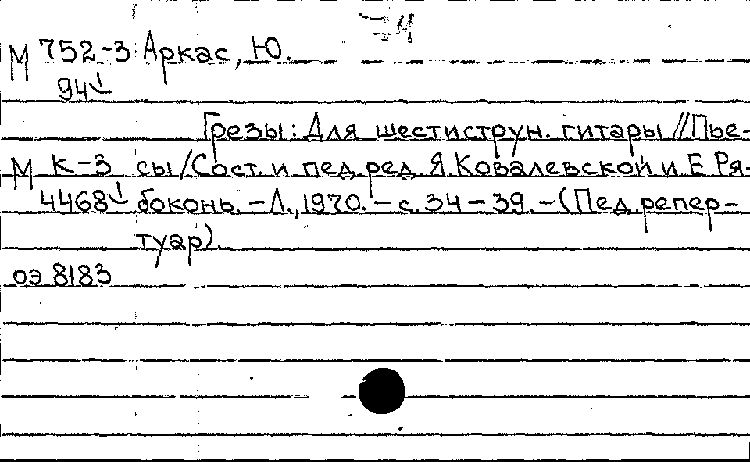 М 752-3 Аркас, Ю.
94
Грезы: Для шестиструн. гитары // Пье-
М К-3 сы / Сост. и пед. ред. Я. Ковалевской и Е. Ря-
4468 боконь. - Л., 1970. - с. 34 - 39. - (Пед. репер-
туар).
оэ 8183